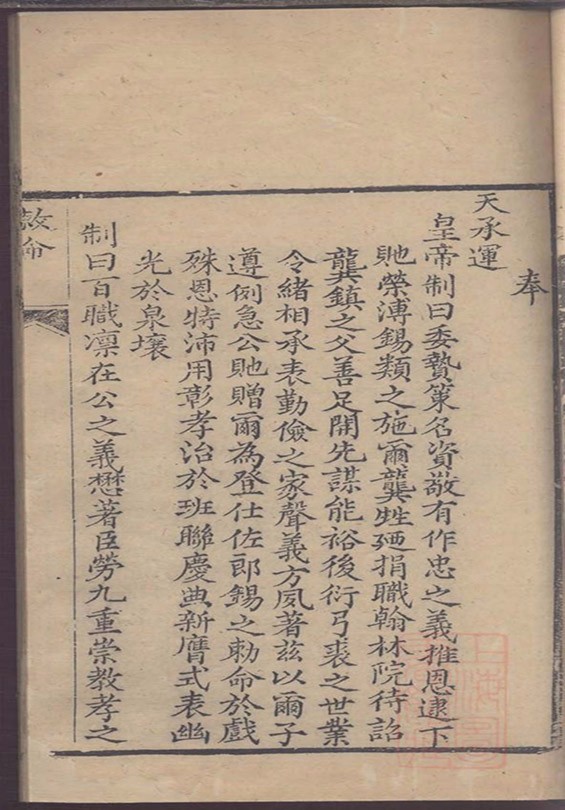 奉
天承運
皇帝制曰委贄策名資敬有作忠之義推恩逮下
貤榮溥錫類之施爾龔甡廼捐職翰林院待詔
龔鎮之父善足開先謀能裕後衍弓裘之世業
令緒相承表勤儉之家聲義方夙著茲以爾子
遵例急公貤贈爾為登仕佐郎錫之勅命於戲
殊恩特沛用彰孝治於班聯慶典新膺式表幽
光於泉壤
制曰百職凜在公之義懋著臣勞九重崇教孝之
敇命